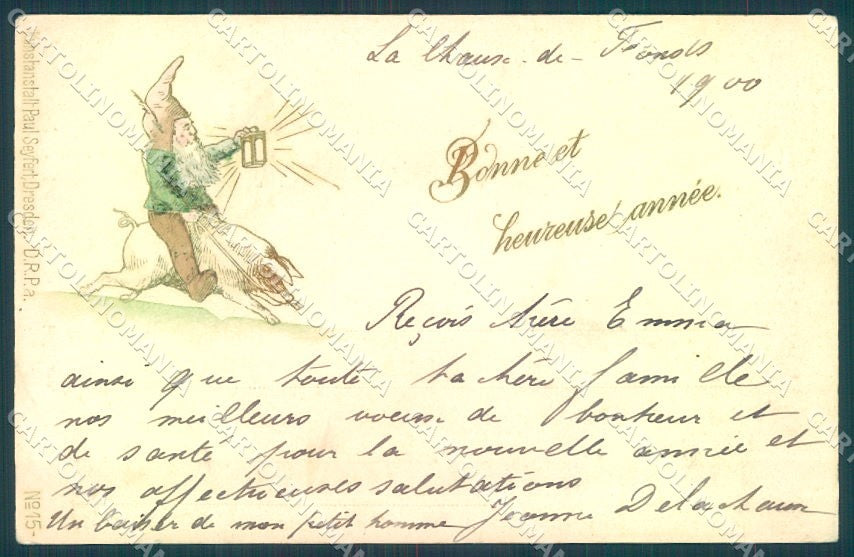 La Chaux-de-Fonds
1900
Bonne et
heureuse année.
Reçois chère Emma
ainsi que toute ta chère famille
nos meilleurs voeux de bonheur et
de santé pour la nouvelle année et
nos affectueuses salutations
Un baiser de mon petit homme Jeanne Delachaux
Kunstanstalt Paul Seyfert, Dresden. D.R.P.a.
No 15-
CARTOLINOMANIA